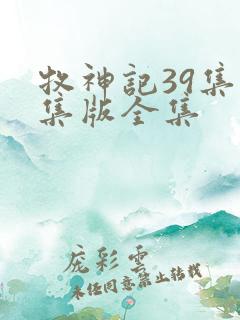 牧神記39集
集版全集
庞彩云
未经同意禁止转载